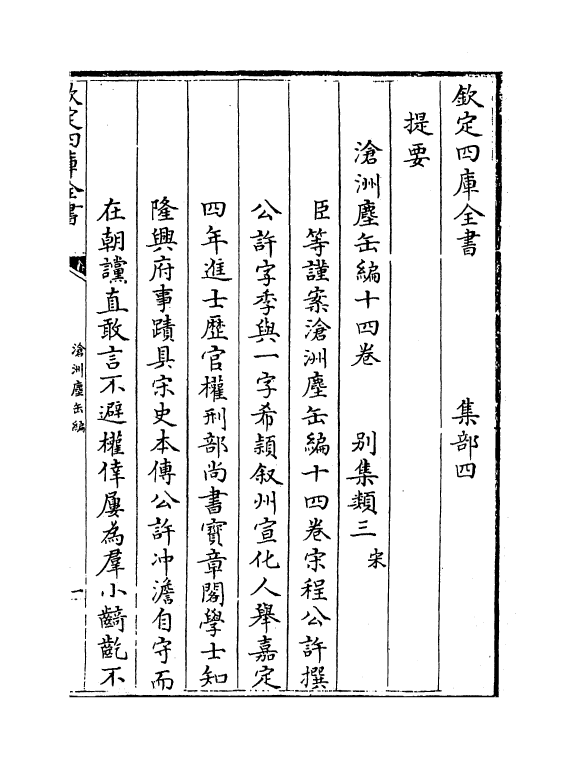 欽定四庫全書　集部四
提要
滄洲塵缶編十四卷　別集類三 宋
臣等謹案滄洲塵缶編十四卷宋程公許撰
公許字季與一字希潁叙州宣化人舉嘉定
四年進士歷官權刑部尚書寳章閣學士知
隆興府事蹟具宋史本傳公許冲澹自守而
在朝讜直敢言不避權倖屢為羣小齮齕不
欽定四庫全書
滄洲塵缶編
一